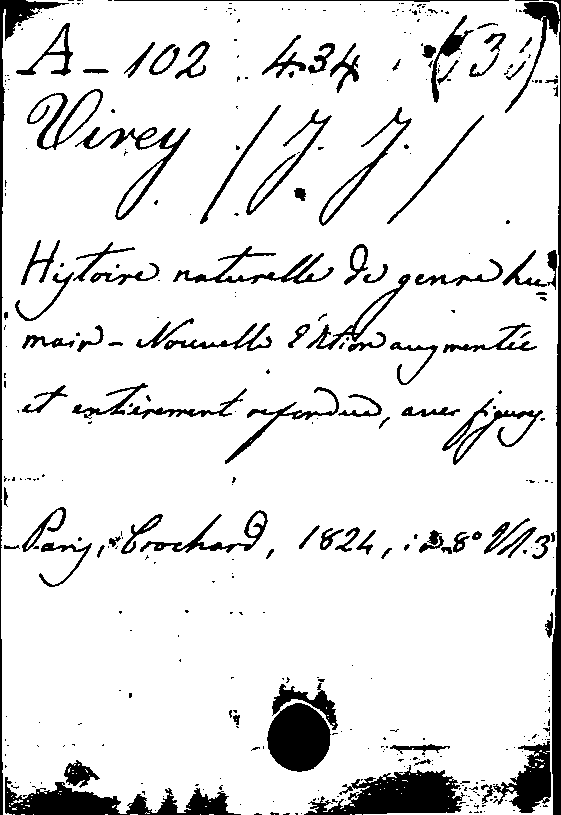 A-102 434
Virey (J. J.)
Histoire naturelle du genre hu=
main - Nouvelle édition augmentée
et entièrement refondue, avec figures.
Paris, Crochard, 1824, in-8° Vol. 3